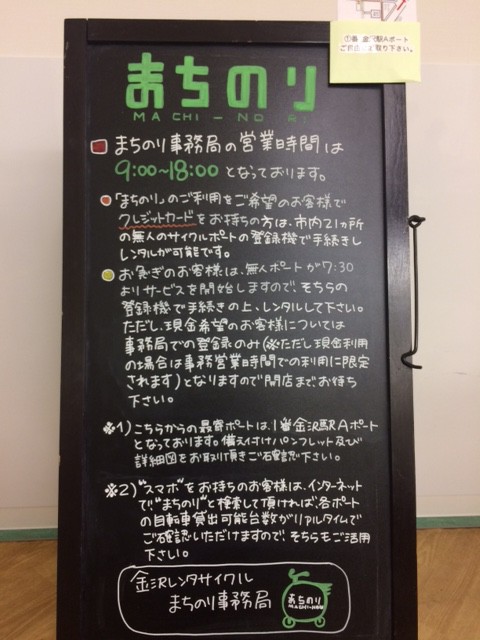 ①番金沢駅Aポート
まちのり
MACHI-NORI
まちのり事務局の営業時間は
9:00~18:00 となっております。
「まちのり」のご利用をご希望のお客様で
クレジットカードをお持ちの方は、市内21ヵ所
の無人のサイクルポートの登録機で手続きし
レンタルが可能です。
お急ぎのお客様は、無人ポートが7:30
よりサービスを開始しますので、そちらの
登録機で手続きの上、レンタルして下さい。
ただし、現金希望のお客様については
事務局での登録のみ(※ただし現金利用
の場合は事務営業時間での利用に限定
されます)となりますので開店までお待ち
下さい。
※1)こちらからの最寄ポートは、1番金沢駅Aポート
となっております。備え付けパンフレット及び
詳細図をお取り頂きご確認下さい。
※2)"スマホ"をお持ちのお客様は、インターネット
で"まちのり"と検索して頂ければ、各ポート
の自転車貸出可能台数がリアルタイムで
ご確認いただけますので、そちらもご活用
下さい。
金沢レンタサイクル
まちのり事務局
まちのり
MACHI-NORI